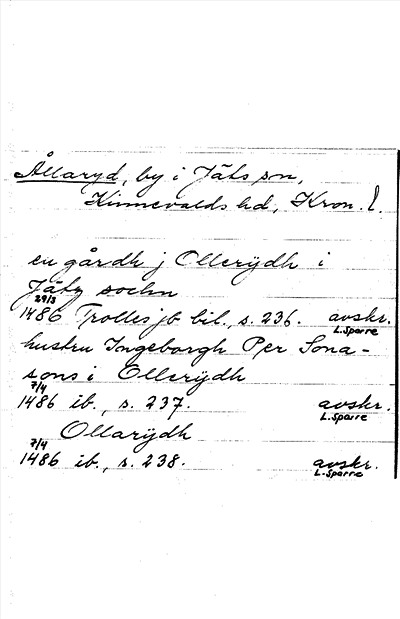 Ållaryd, by i Jäts sn,
Kinnevalds hd, Kron. l.
en gårdh j Ollerÿdh i
Jätz sochn
29/3 1486 Trolles jb bil., s. 236. avskr. L. Sparre
hustru Ingeborgh Per Sona-
sons i Ollerÿdh
7/4 1486 ib., s. 237. avskr. L. Sparre
Ollarÿdh
7/4 1486 ib., s. 238. avskr. L. Sparre